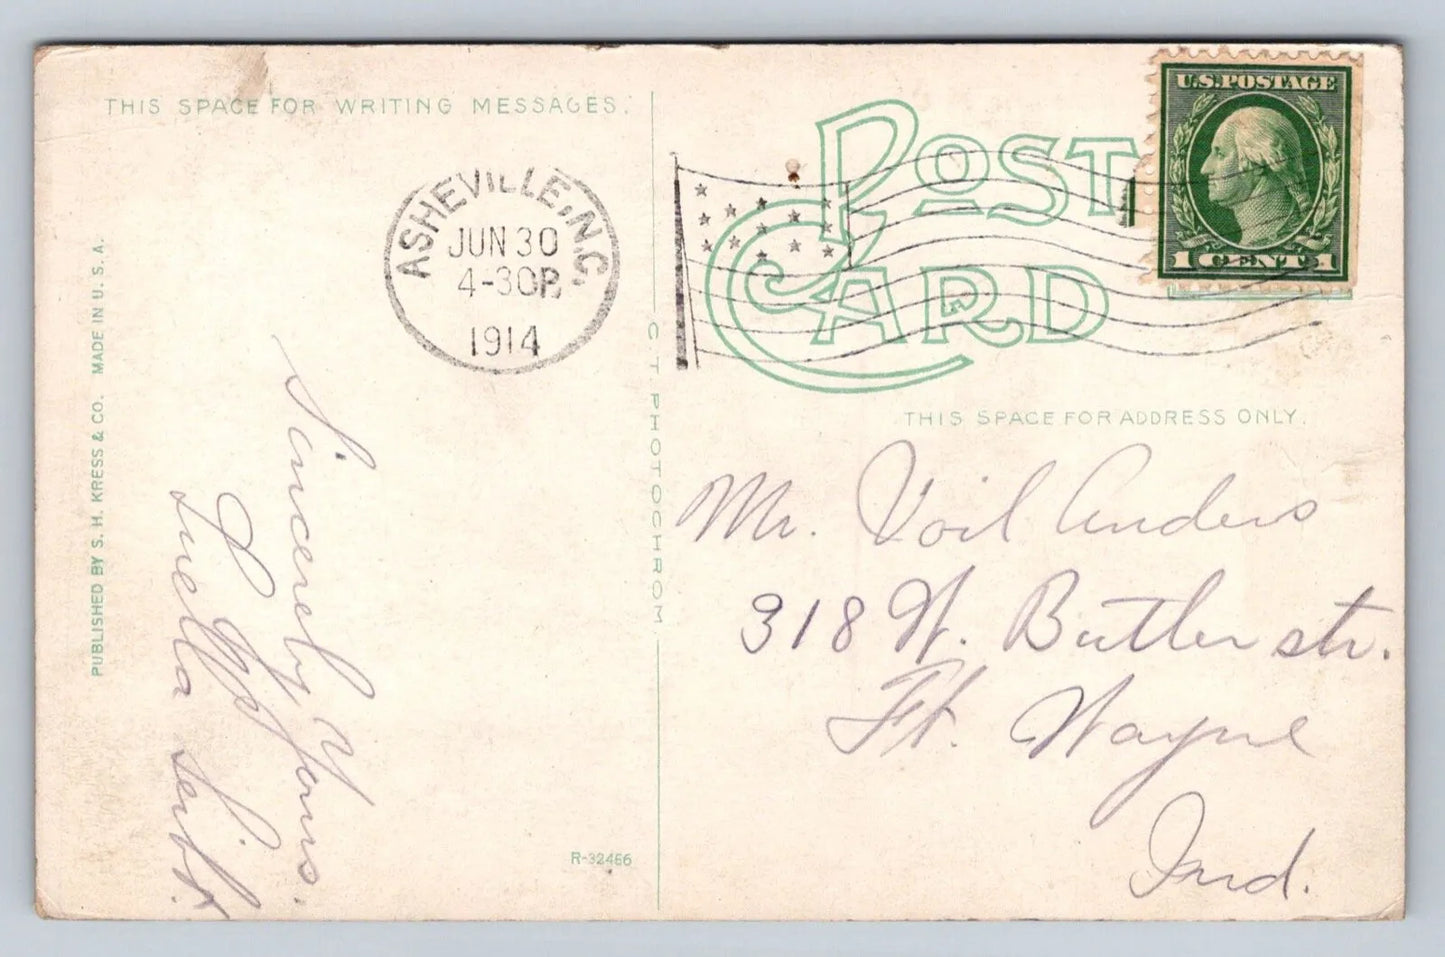 THIS SPACE FOR WRITING MESSAGES.
PUBLISHED BY S. H. KRESS & CO. MADE IN U. S. A.
ASHEVILLE, N.C.
JUN 30
4-30P
1914
Sincerely Yours.
Luella
R-32466
C T PHOTOCHROM
POST
CARD
U.S. POSTAGE
1 CENT 1
THIS SPACE FOR ADDRESS ONLY.
Mr. Voil Anders
318 W. Butler str.
Ft. Wayne
Ind.